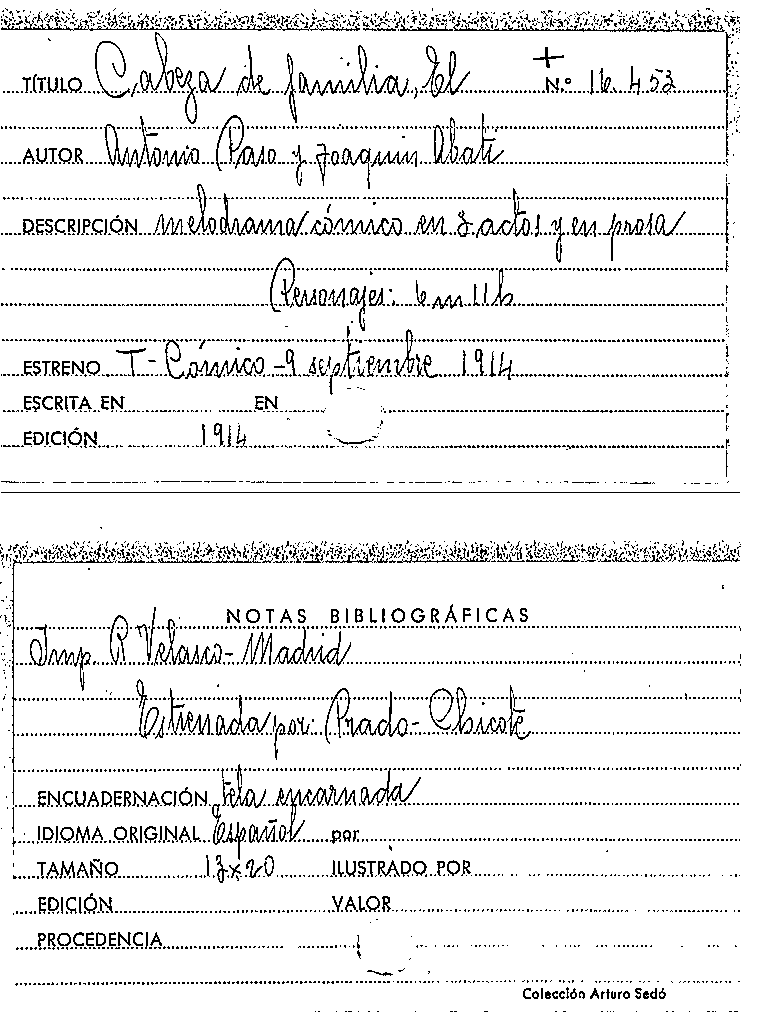 TÍTULO Cabeza de familia, El + N.º 16.453
AUTOR Antonio Paso y Joaquin Abati
DESCRIPCIÓN melodrama cómico en 3 actos y en prosa
Personajes: 6 m 11 h
ESTRENO T- Cómico - 9 septiembre 1914
ESCRITA EN EN
EDICIÓN 1914
NOTAS BIBLIOGRÁFICAS
Imp. R Velasco - Madrid
Estrenada por: Prado - Chicote
ENCUADERNACIÓN tela encarnada
IDIOMA ORIGINAL Español por
TAMAÑO 13 x 20 ILUSTRADO POR
EDICIÓN VALOR
PROCEDENCIA
Colección Arturo Sedó